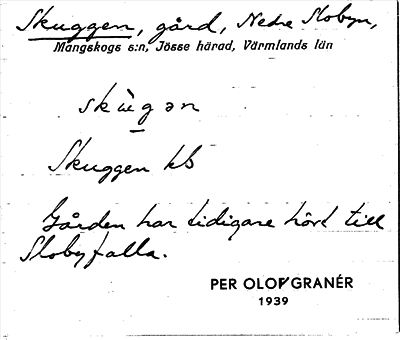 Skuggen, gård, Nedre Slobyn,
Mangskogs s:n, Jösse härad, Värmlands län
skùgən
Skuggen kb
Gården har tidigare hört till
Slobyfalla.
PER OLOF GRANÉR
1939